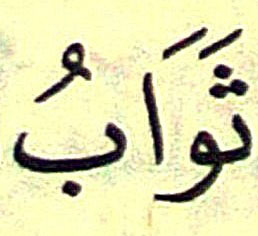 ثَوَابُ